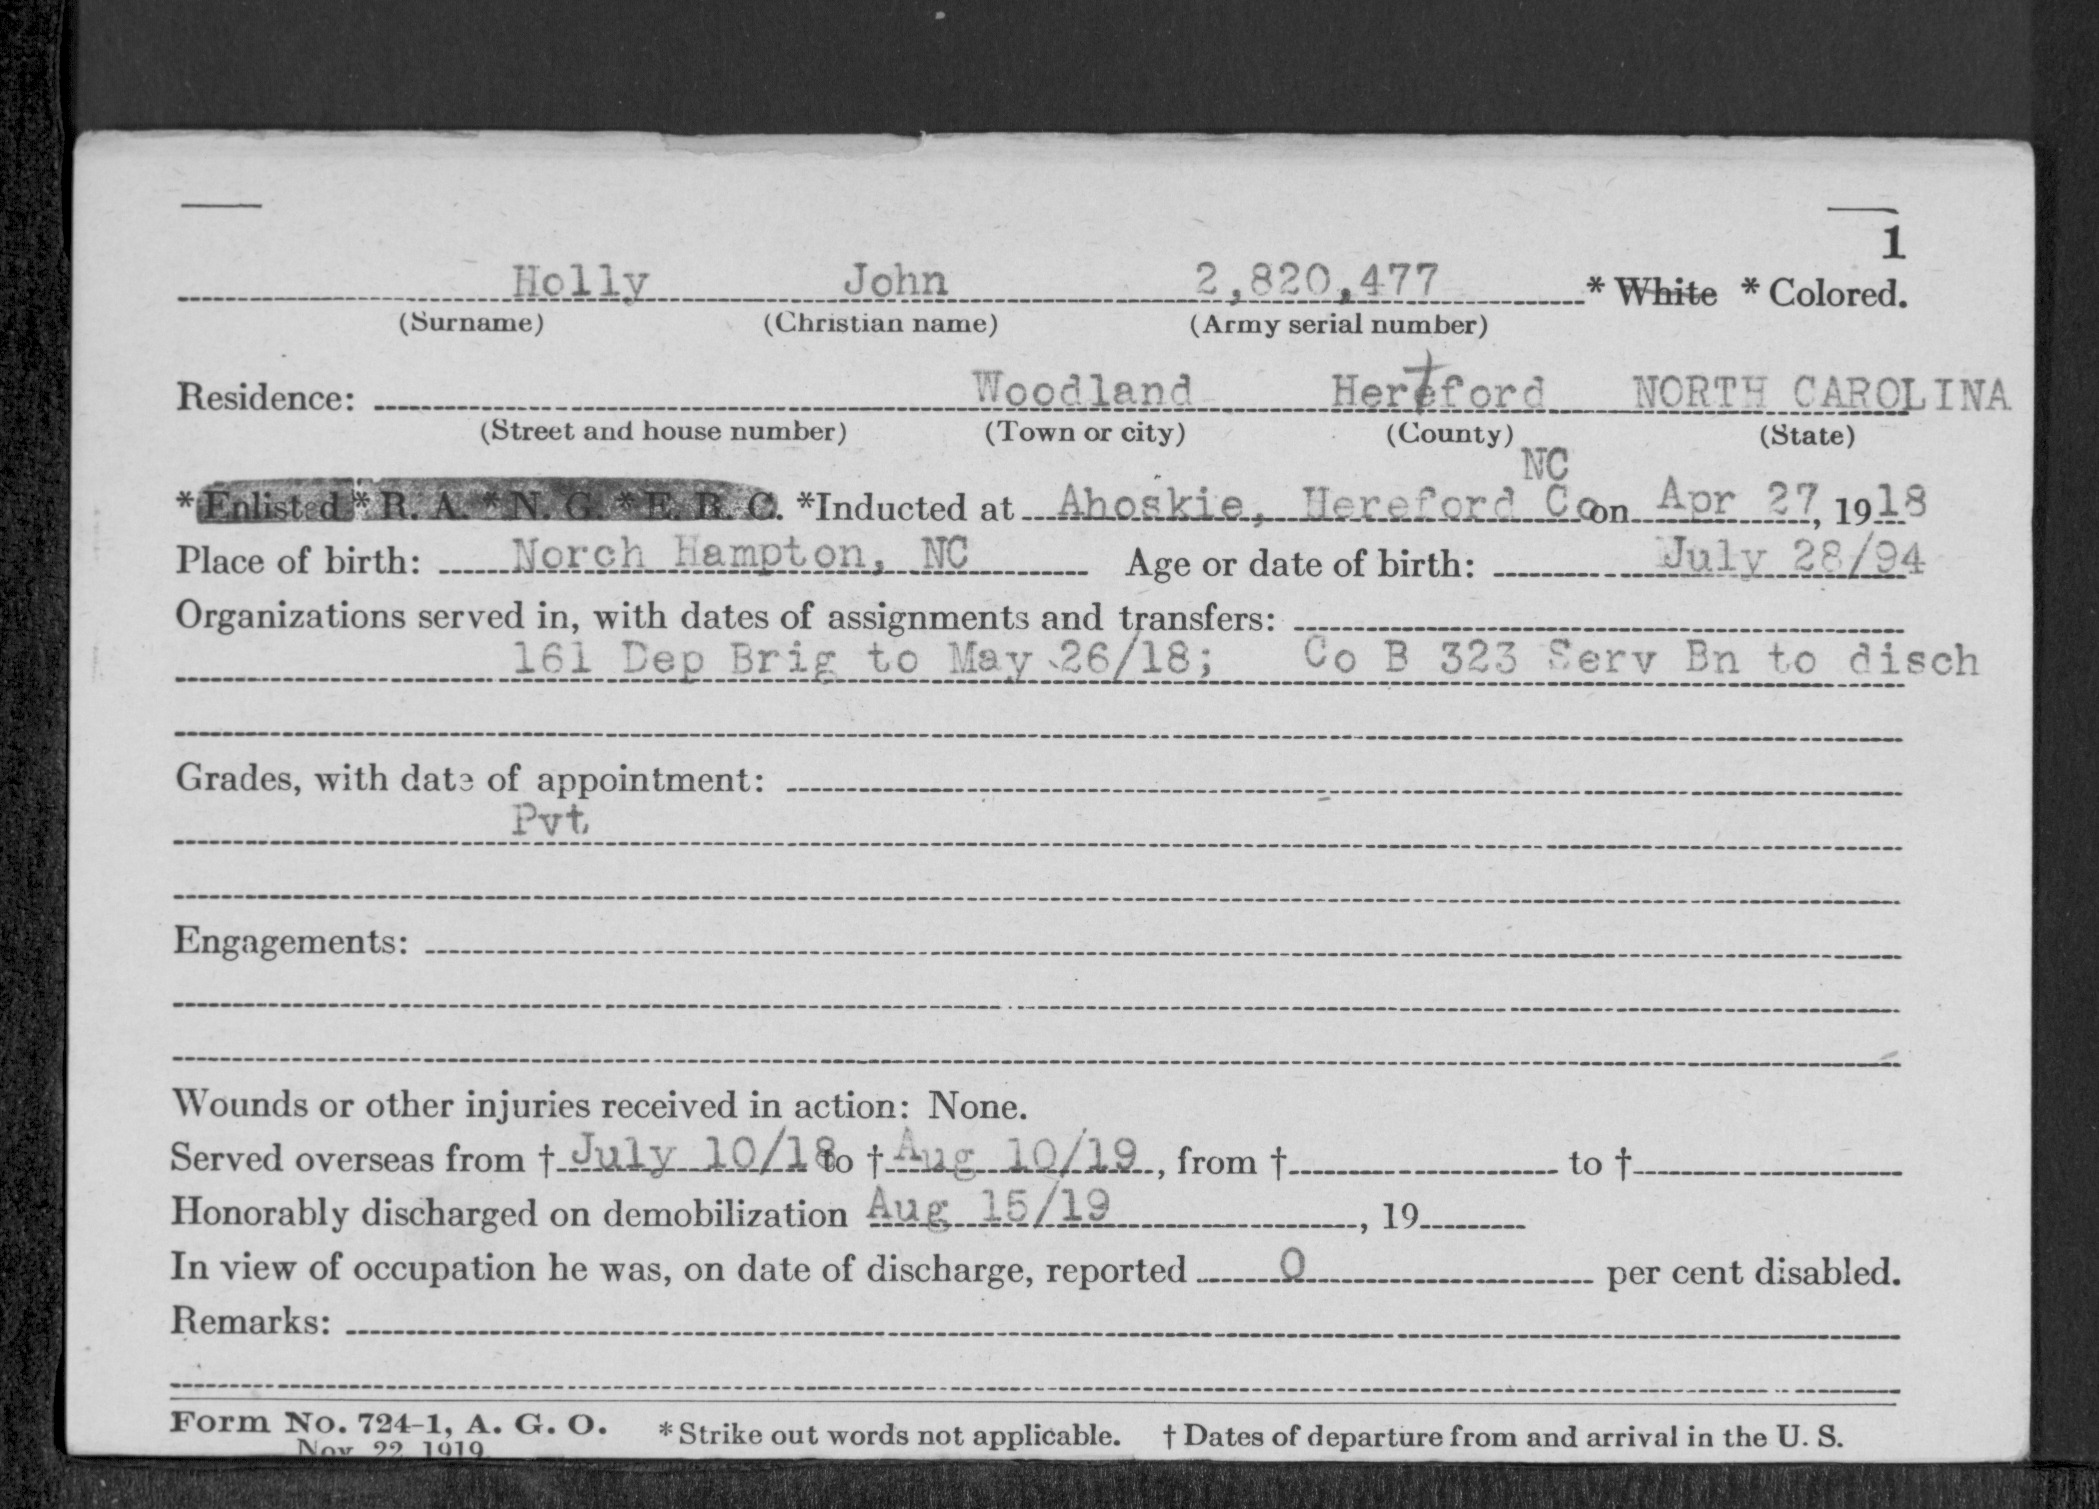 1
Holly John 2,820,477 * White * Colored.
(Surname) (Christian name) (Army serial number)
Residence: Woodland Hertford NORTH CAROLINA
(Street and house number) (Town or city) (County) (State)
NC
*Enlisted * R. A. * N. G. * E. R. C. *Inducted at Ahoskie, Hereford Co on Apr 27, 1918
Place of birth: Norch Hampton, NC Age or date of birth: July 28/94
Organizations served in, with dates of assignments and transfers:
161 Dep Brig to May 26/18; Co B 323 Serv Bn to disch
Grades, with date of appointment:
Pvt
Engagements:
Wounds or other injuries received in action: None.
Served overseas from † July 10/18 to † Aug 10/19, from † to †
Honorably discharged on demobilization Aug 15/19, 19
In view of occupation he was, on date of discharge, reported 0 per cent disabled.
Remarks:
Form No. 724-1, A. G. O. * Strike out words not applicable. † Dates of departure from and arrival in the U. S.
Nov. 22, 1919